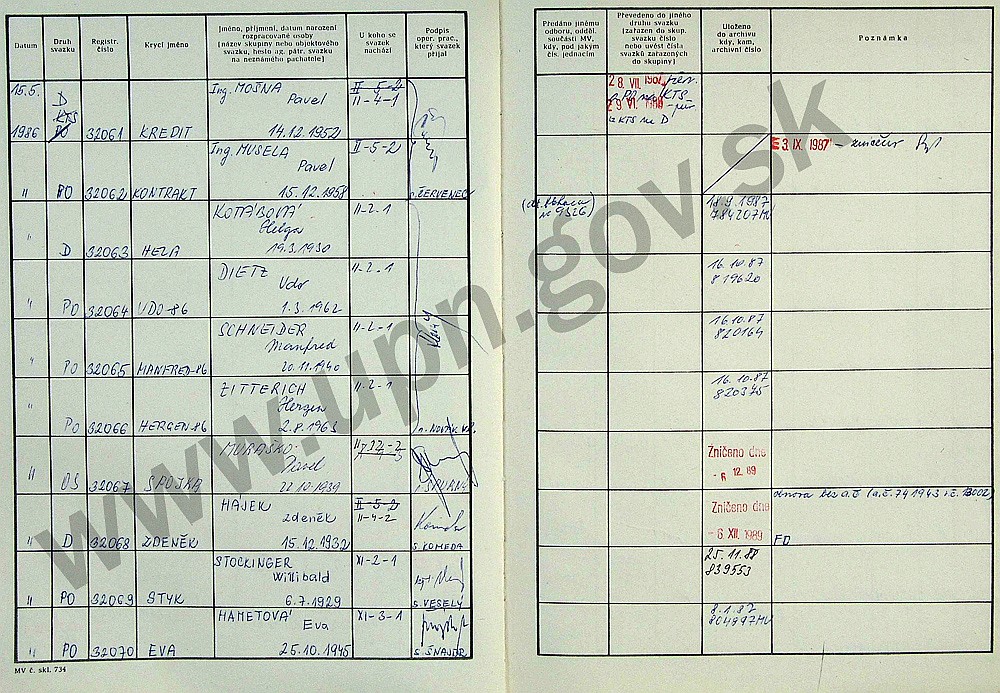 Datum
Druh svazku
Registr. číslo
Krycí jméno
Jméno, příjmení, datum narození
rozpracované osoby
(název skupiny nebo objektového
svazku, heslo ag. pátr. svazku
na neznámého pachatele)
U koho se
svazek
nachází
Podpis
oper. prac.,
který svazek
přijal
Předáno jinému
odboru, odděl.
součásti MV,
kdy, pod jakým
čís. jednacím
Převedeno do jiného
druhu svazku
(zařazen do skup.
svazku číslo
nebo uvést čísla
svazků zařazených
do skupiny)
Uloženo
do archivu
kdy, kam,
archivní číslo
Poznámka
15.5.
1986
D
KTS
PO
32061 KREDIT
Ing. MOŠNA
Pavel
14.12.1952
II-5-2
II-4-1
28. VII. 1987
29. VI. 1988
z KTS na D
" PO 32062 KONTRAKT
Ing. MUSELA
Pavel
15.12.1958
II-5-2
s. ČERVENEC
3. IX. 1987 – zničen
" D 32063 HELA
KOTTÁBOVÁ
Helga
19.3.1930
II-2-1
18.9.1987
784207MV
" PO 32064 UDO-86
DIETZ
Udo
1.3.1962
II-2-1
16.10.87
819620
" PO 32065 MANFRED-86
SCHNEIDER
Manfred
20.11.1940
II-2-1
16.10.87
820164
" PO 32066 HERGEN-86
ZITTERICH
Hergen
2.8.1963
II-2-1
16.10.87
820375
" OS 32067 SPOJKA
MURAŠKO
Pavel
22.10.1939
Zničeno dne
- 6. 12. 89
" D 32068 ZDENĚK
HÁJEK
Zdeněk
15.12.1932
II-5-2
II-4-2
s. KOMEDA
Zničeno dne
- 6. XII. 1989
obnova bez a.č. (a.č. 741943 r.č. 13002)
" PO 32069 STYK
STOCKINGER
Willibald
6.7.1929
XI-2-1
s. VESELÝ
25.11.88
839553
" PO 32070 EVA
HAMETOVÁ
Eva
25.10.1945
XI-3-1
s. ŠNAJDR
8.1.87
804997MV
MV č. skl. 734
www.upn.gov.sk